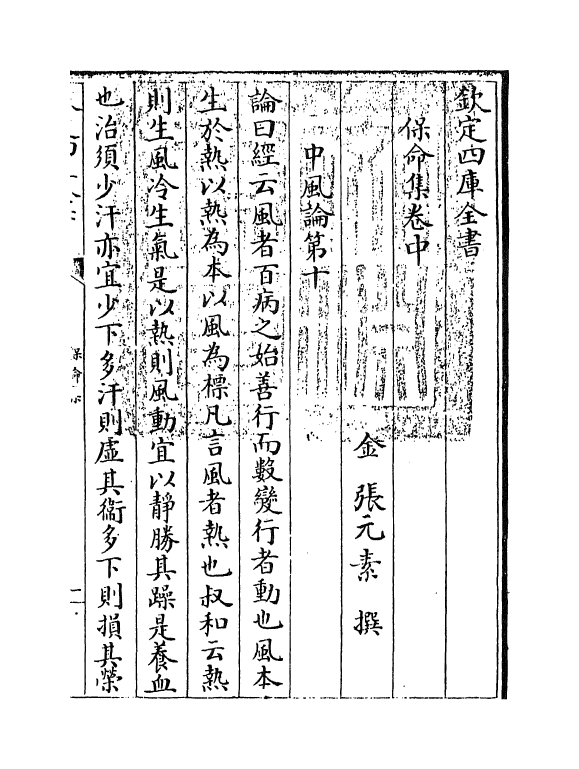 欽定四庫全書
保命集卷中
金 張元素 撰
中風論第十
論曰經云風者百病之始善行而數變行者動也風本
生於熱以熱為本以風為標凡言風者熱也叔和云熱
則生風冷生氣是以熱則風動宜以靜勝其躁是養血
也治須少汗亦宜少下多汗則虛其衞多下則損其榮